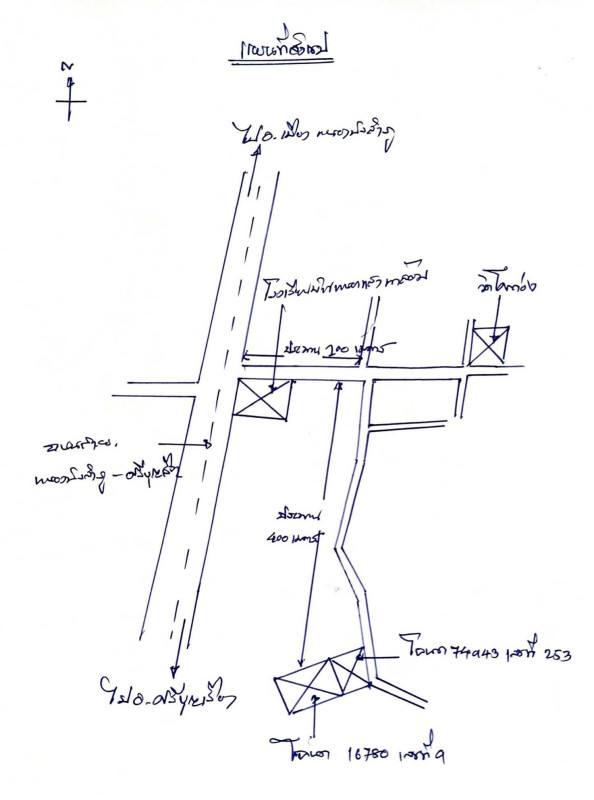 แผนที่สังเขป
N
ไป อ.เมือง หนองบัวลำภู
โรงเรียนบ้าน
วัดโนน
ประมาณ 200 เมตร
ถนนสาย
หนองบัวลำภู - ศรีบุญเรือง
ประมาณ
400 เมตร
โฉนด 74943 เลขที่ 253
ไป อ.ศรีบุญเรือง
โฉนด 16780 เลขที่ 9